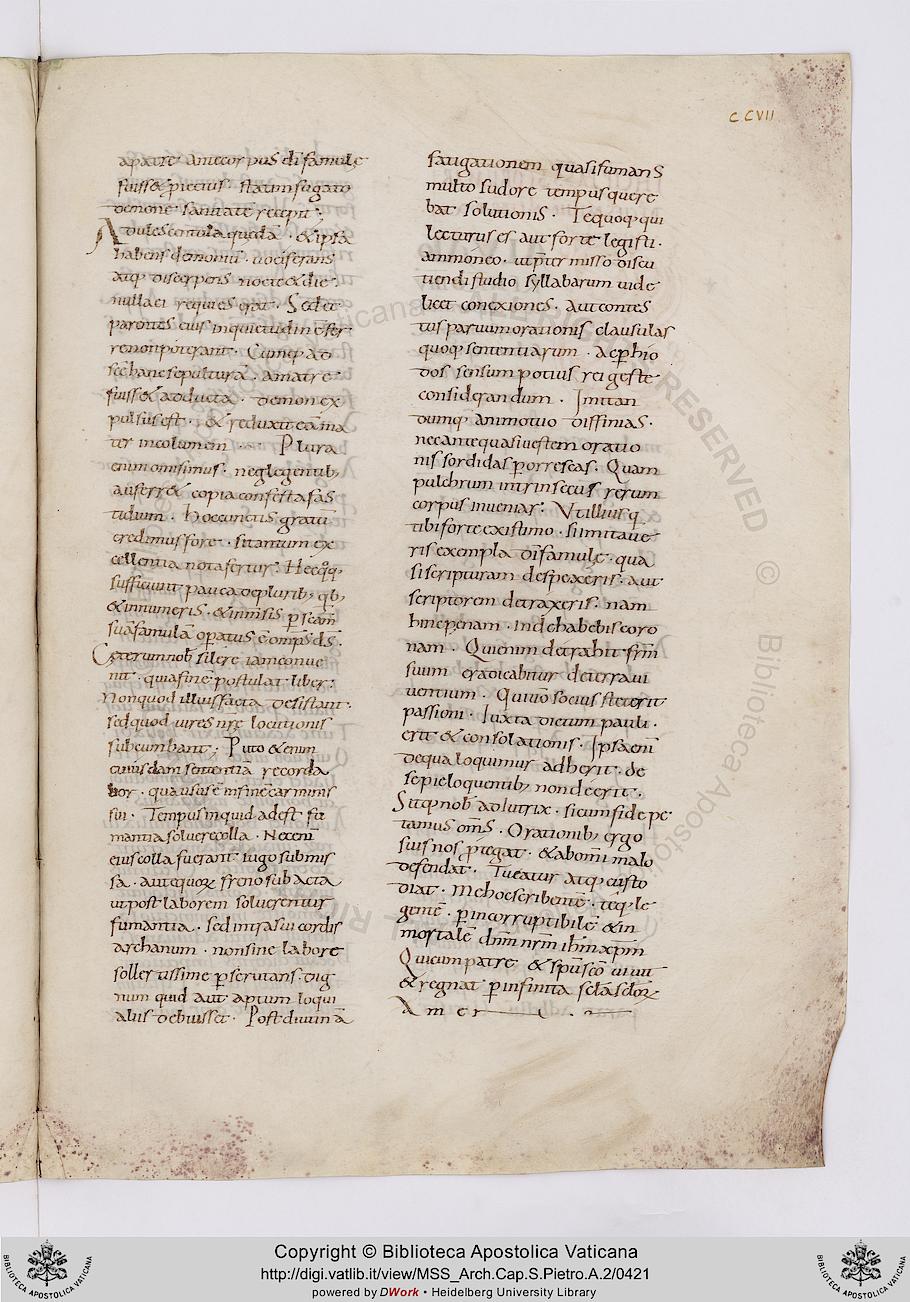 CCVII
a patre ante corpus dī famulę
fuisset proiectus · statim fugato
demone sanitatē recepit ;
Adulescentula quedā · & ipsa
habens demoniū · vociferans
atq; discerpens nocte & die ·
nulla ei requies erat · Sed et
parentes eius inquietudinē fer
re non poterant · Cumq; ad
sc̄e hanc sepulturā · a matre
fuisset adducta · demon ex
pulsus est · & reduxit eā ma
ter incolumem · Plura
enim omisimus · neglegentib;
auferret copia confecta fas
tidium · hoc cunctis gratū
credimus fore · si tantum ex
cellentia nota fertur · Hec q̄q;
sufficiunt pauca de plurib; qb;
& innumeris · & inmēsis p̄ scām
suā famulā operatus ē omp̄s d̄s ·
Ceterum nob̄ silere iam conue
nit · quia finē postulat liber ·
Non quod illius facta desistant ·
sed quod vires nr̄ę locutionis
subcumbant ; Puto & enim
cuiusdam sententiā recorda
bor · qua usus ē in fine carminis
sui · Tempus inquid adest fu
mantia soluere colla · Nec enī
eius colla fuerant iugo submis
sa · aut equoꝝ freno subacta
ut post laborem soluerentur
fumantia · sed intra sui cordis
archanum · non sine labore
sollertissime perscrutans · dig
num quid aut aptum loqui
aliis debuisset · Post diutinā
fatigationem quasi fumans
multo sudore tempus quere
bat solutionis · Te quoq; qui
lecturus es aut forte legisti ·
ammoneo · ut p̄termisso discu
tiendi studio syllabarum uide
licet conexiones · aut contes
tus paruum orationis clausulas
quoq; sententiarum · ac perhio
dos sensum potius rei gestę
considerandum · Imitan
dumq; animo tuo diffinias ·
nec ante quasi uestem oratio
nis sordidas perrescas · Quam
pulchrum intrinsecus rerum
corpus invenias · Ut illius q
tibi forte existimo · si imitaue
ris exempla dī famulę · qua
si scripturam despexeris · aut
scriptorem detraxeris · nam
hinc penam · inde habebis coro
nam · Qui enim detrahit frm̄
suum eradicabitur de terra ui
uentium · Qui uō socius steterit
passioni · Iuxta dictum pauli ·
erit & consolationis · Ipsa enī
de qua loquimur adherit · de
se pie loquentib; non deerit ·
Sitq; nob̄ adiutrix · sicum fide pe
tamus om̄s · Orationib; ergo
suis nos protegat · & ab omī malo
defendat · Tueatur atq; custo
diat · me hoc scribentē · teq; le
gentē · p̄ incorruptibilē & in
mortalē dn̄m nr̄m ihm̄ xpm̄
Qui cum patre & spū sc̄o uiuit
& regnat p̄ infinita sclā scloꝝ
Amen
RESERVED © Biblioteca Aposto
Copyright © Biblioteca Apostolica Vaticana
http://digi.vatlib.it/view/MSS_Arch.Cap.S.Pietro.A.2/0421
powered by DWork • Heidelberg University Library
BIBLIOTECA APOSTOLICA VATICANA
BIBLIOTECA APOSTOLICA VATICANA